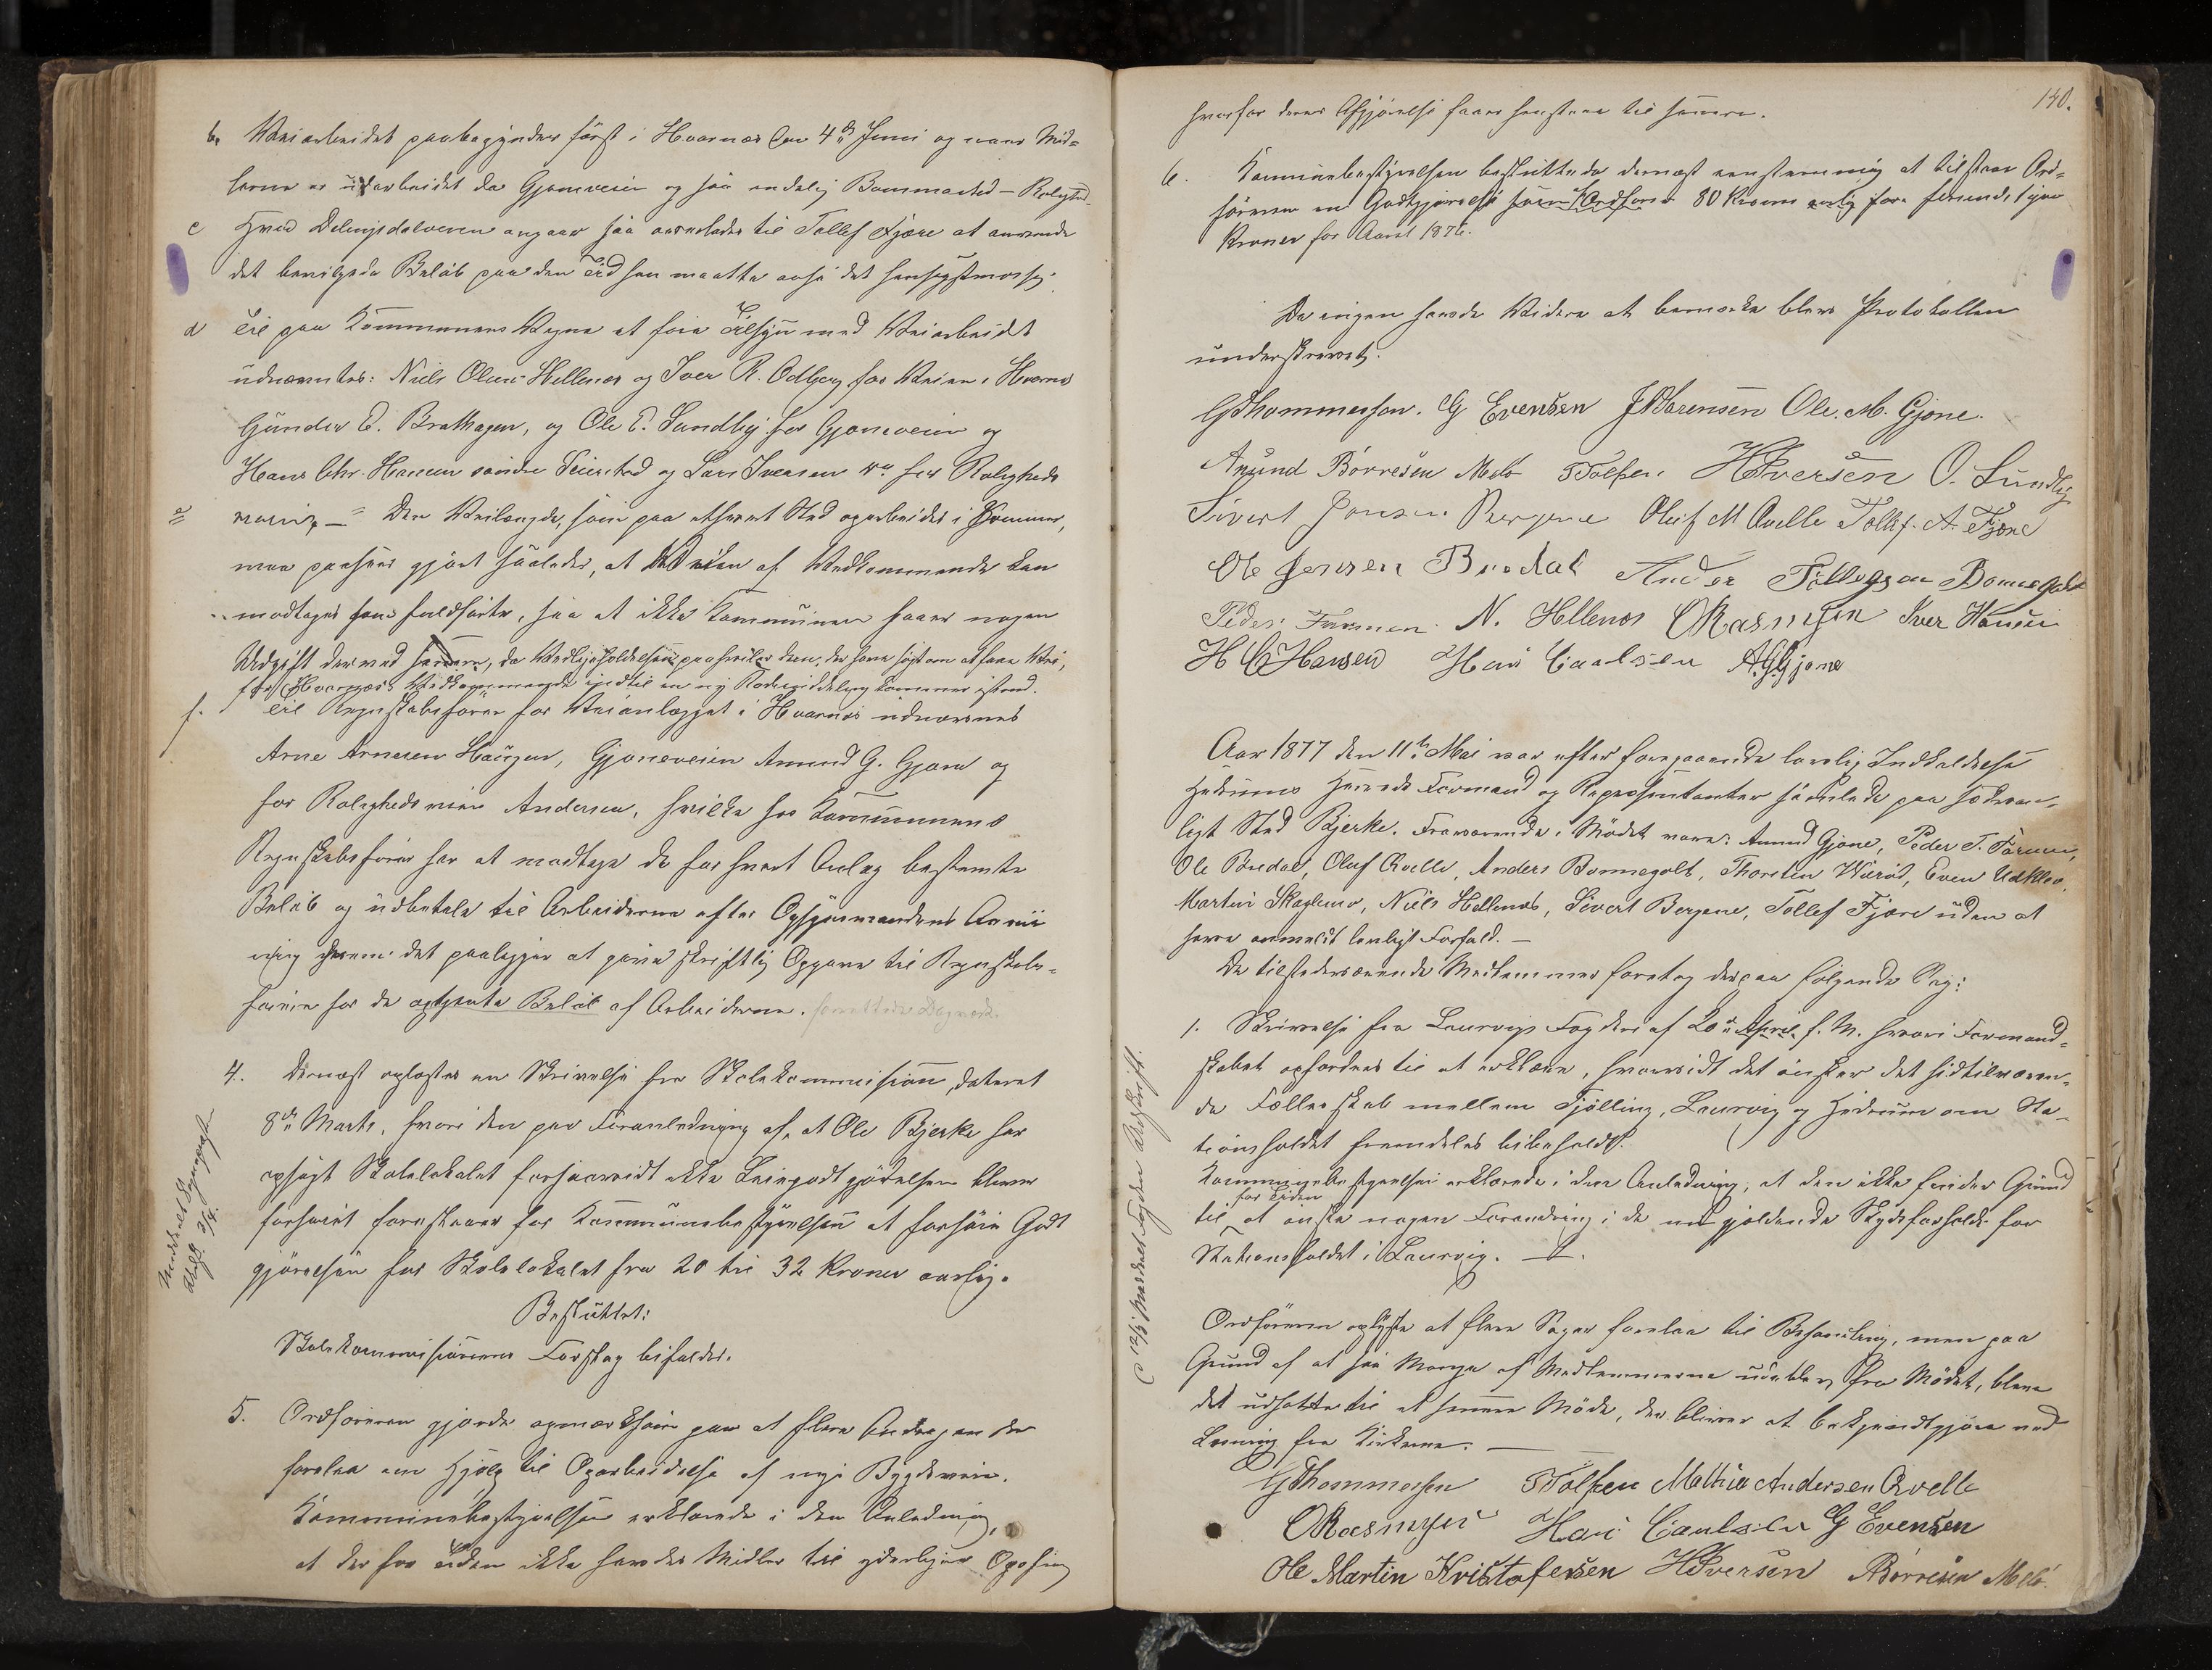 b. Veiarbeidet paabegyndes först i Hvarnæs den 4de Juni og naar Mid-
lerne er udarbeidet da Gjoneveien og saa endelig Bommested-Roligh.
c Hvad Delingsdalveien angaar saa overlades til Tollef Fjære at anvende
det bevilgede Belöb paa den Tid han maatte anse det hensigtmæssig.
d Til paa Kommunens Vegne at föie Tilsyn med Veiarbeidet
udnævntes: Niels Olsen Hellenæs og Iver R. Odberg for Veien i Hvarnæs
Gunder E. Brathagen, og Ole E. Sundby for Gjoneveien og
Hans Chr. Hansen söndre Seierstad og Lars Iversen for Roligheds
e veien. — Den Veilængde, som paa ethvert Sted oparbeides i Sommer,
maa paasees gjort saaledes, at Veien af Vedkommende kan
modtages som fuldfört, saa at ikke Kommunen faaer nogen
Udgift derved, da Vedligeholdelsen paahviler dem, der have sögt om at faae Vei,
for Hvarnæs Vedkommende indtil en ny Rodeinddeling kommer istand.
f. Til Regnskabsförer for Veianlægget i Hvarnæs udnævnes
Arne Arnesen Haugen, Gjoneveien Amund G. Gjone og
for Rolighedsveien Andersen, hvilke hos Kommunens
Regnskabsförer har at modtage de for hvert Anlæg bestemte
Belöb og udbetale til Arbeiderne efter Opsynsmandens Anvis
ning hvem det paalægges at give skriftlig Opgave til Regnskabs-
föreren for de optjente Belöb af Arbeiderne.
4. Dernæst oplæstes en Skrivelse fra Skolekommissionen, dateret
8de Marts, hvori den paa Foranledning af, at Ole Bjerke har
opsagt Skolelokalet forsaavidt ikke Leiegodtgjörelsen bliver
forhöiet foreslaaer for Kommunebestyrelsen at forhöie Godt
gjörelsen for Skolelokalet fra 20 til 32 Kroner aarlig.
Besluttet:
Skolekommissionens Forslag bifaldes.
5. Ordföreren gjorde opmærksom paa at flere Andragender
forelaa om Hjælp til Oparbeidelse af nye Bygdeveie.
Kommunebestyrelsen erklærede i den Anledning,
at der for Tiden ikke havdes Midler til yderligere
140.
hvorfor deres Afgjörelse faaer henstaae til senere.
6. Kommunebestyrelsen besluttede dernæst eenstemmig at tilstaae Ord-
föreren en Godtgjörelse som Ordförer 80 Kroner firsindstyve
Kroner for Aaret 1876.
Da ingen havde Videre at bemærke blev Protokollen
underskrevet.
GThommessen. G Evensen J Sörensen Ole. M. Gjone.
Amund Börresen Melö TTolfsen HIversen O. Sundby
Sivert Jonsen Bergene Oluf M Qvelle Tollef. A. Fjære
Ole Jensen Buedal Anders Tollefsen Bommegolt
Peder Farmen N. Hellenæs ORasmusen Iver Hansen
H C Hansen Hans Carlsen A.G.Gjone
Aar 1877 den 11te Mai var efter foregaaende lovlig Indkaldelse
Hedrums Herreds Formænd og Repræsentanter samlede paa sædvan-
ligt Sted Bjerke. Fraværende i Mödet vare: Amund Gjone, Peder T. Farmen,
Ole Buedal, Oluf Qvelle, Anders Bommegolt, Thorsten Vieröd, Even Udklev,
Martin Skaglund, Niels Hellenæs, Sivert Bergene, Tollef Fjære uden at
have anmeldt lovligt Forfald. —
De tilstedeværende Medlemmer foretog derpaa fölgende Sag:
1. Skrivelse fra Laurvigs Fogderi af 20de April f. M. hvori Formand-
skabet opfordres til at erklære, hvorvidt det önsker det hidtilværen-
de Fællesskab mellem Tjölling, Laurvig og Hedrum om Sta-
tionsholdet fremdeles bibeholdt.
Kommunebestyrelsen erklærede i den Anledning, at den ikke finder Grund
for Tiden
til at önske nogen Forandring i de nu gjældende Skydsforhold for
Stationsholdet i Laurvig. —
12/5 meddelt Fogden Afskrift.
Ordföreren oplyste at flere Sager forelaa til Behandling, men paa
Grund af at saa Mange af Medlemmerne udeblev fra Mödet, blev
det udsatte til et senere Möde, der bliver at bekjendtgjöre ved
Læsning fra Kirkerne. —
GThommessen TTolfsen Mathias Andersen Qvelle
ORasmusen Hans Carlsen G Evensen
Ole Martin Kristofersen HIversen ABörresen Melö.